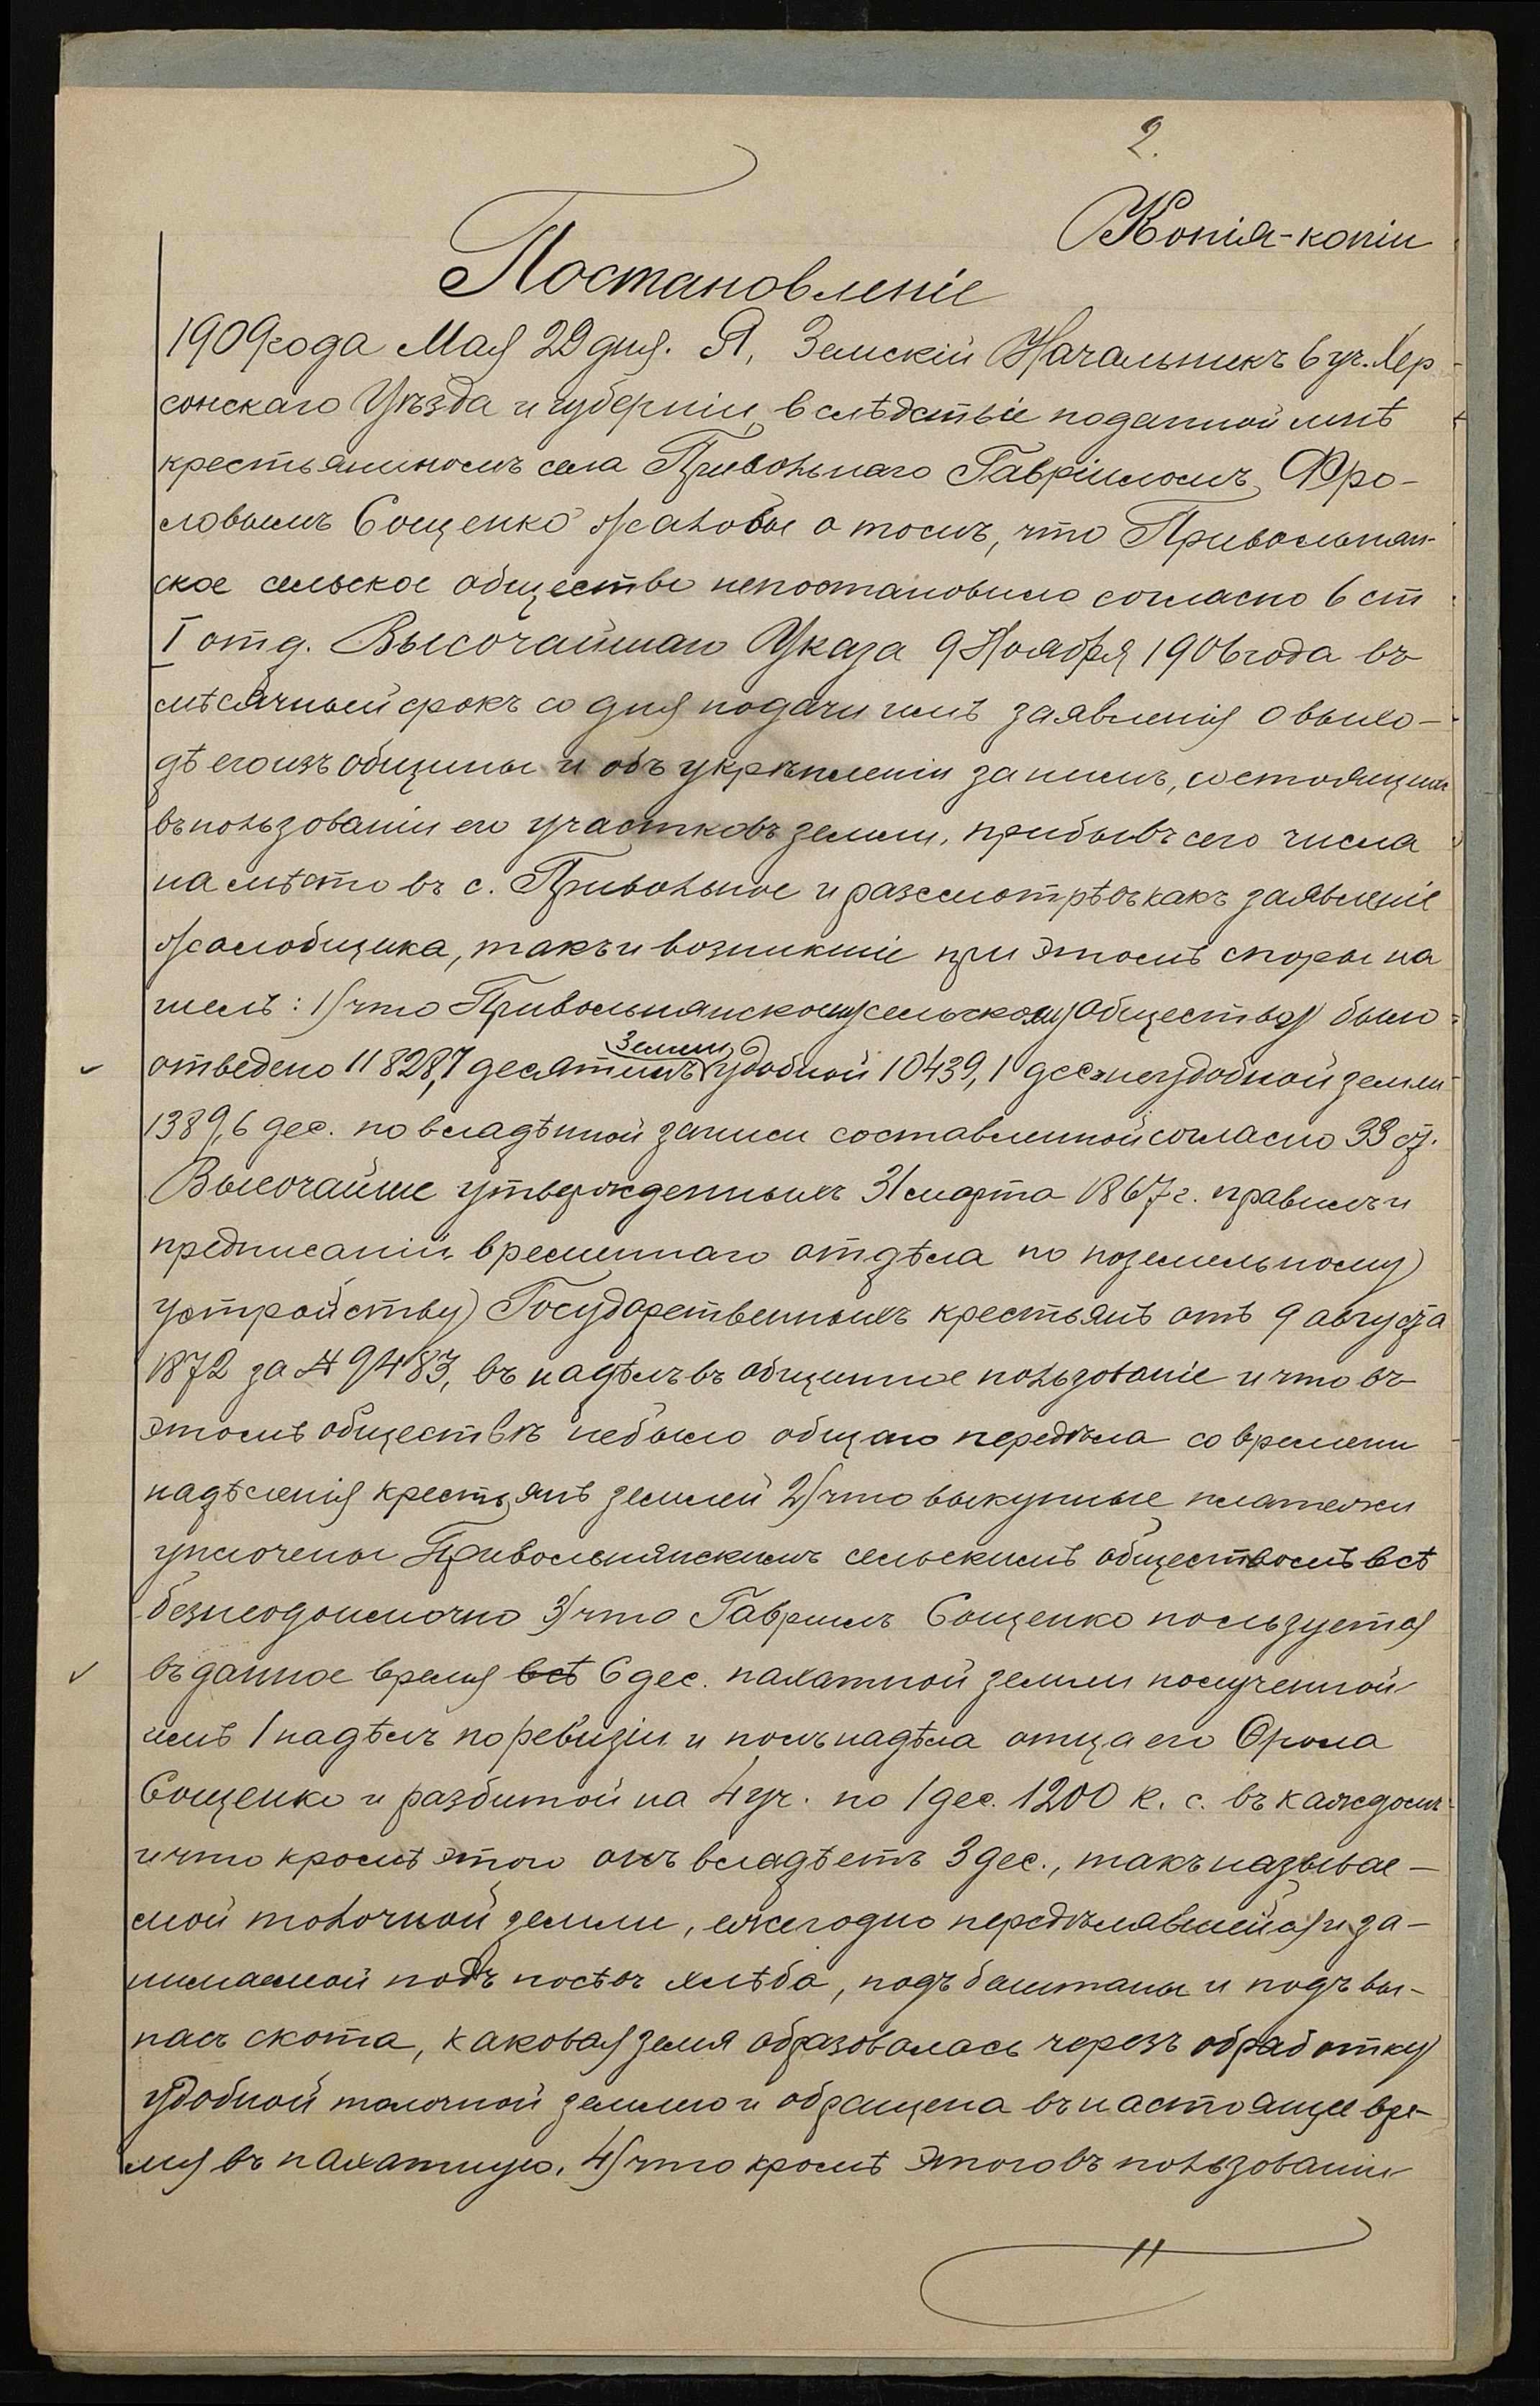 2.
Копія-копіи
Постановленіе
1909 года Мая 29 дня. Я, Земскій Начальникъ 6 уч. Хер-
сонскаго Уѣзда и губерніи, вслѣдствіе поданной мнѣ
крестьяниномъ села Привольнаго Гавріиломъ Фро-
ловымъ Сощенко жалобы о томъ, что Привольнян-
ское сельское общество непостановило согласно 6 ст
I отд. Высочайшаго Указа 9 Ноября 1906 года въ
мѣсячный срокъ со дня подачи имъ заявленія о выхо-
дѣ его изъ общины и объ укрѣпленіи за нимъ, состоящихъ
въ пользованіи его участковъ земли, прибывъ сего числа
на мѣсто въ с. Привольное и разсмотрѣвъ какъ заявленіе
жалобщика, такъ и возникшіе при этомъ споры на
шелъ: 1) что Привольнянскому сельскому обществу было
земли
отведено 11828,7 десятинъ удобной 10439,1 дес. неудобной земли
1389,6 дес. по владѣнной записи составленной согласно 33 ст.
Высочайше утвержденныхъ 31 марта 1867 г. правилъ и
предписаній временнаго отдѣла по поземельному
устройству Государственныхъ крестьянъ отъ 9 августа
1872 за № 9483, въ надѣлъ въ общинное пользованіе и что въ
этомъ обществѣ небыло общаго передѣла со времени
надѣленія крестьянъ землей 2) что выкупные платежи
уплочены Привольнянскимъ сельскимъ обществомъ всѣ
безнедоимочно 3) что Гавриилъ Сощенко пользуется
въ данное время всѣ 6 дес. пахатной земли полученной
имъ 1 надѣлъ по ревизіи и полъ надѣла отца его Фрола
Сощенко и разбитой на 4 уч. по 1 дес. 1200 к. с. въ каждомъ
и что кромѣ этого онъ владѣетъ 3 дес., такъ называе-
мой толочной земли, ежегодно передѣлявшейся и за-
нимаемой подъ посѣвъ хлѣба, подъ баштаны и подъ вы-
пасъ скота, каковая земля образовалась черезъ обработку
удобной толочной землею и обращена въ настоящее вре-
мя въ пахатную, 4) что кромѣ этого въ пользованіи